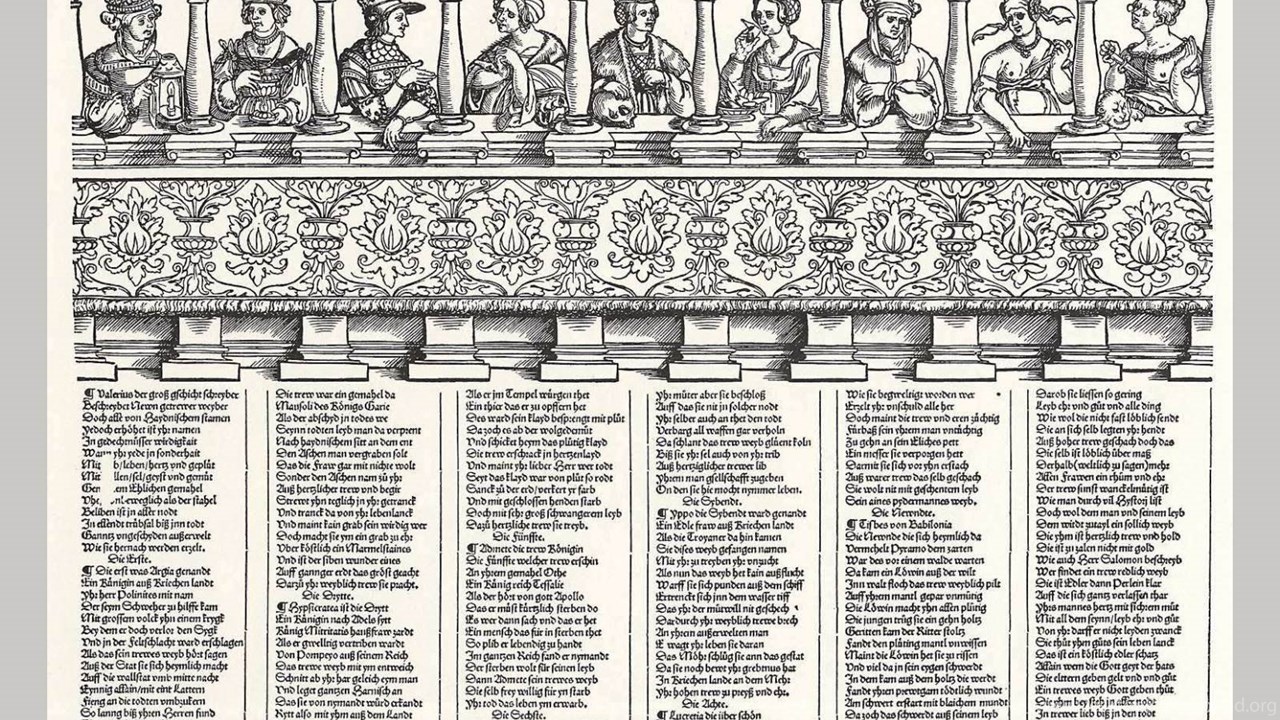 ¶ Valerius der groß gschicht schreyber
Beschreybet Newn getrewer weyber
Doch alle von Haydnischem stamen
Yedoch erhöhet ist yhr namen
In gedechtnüsser wirdigkait
yhr yede jn sonderheit
Mit leyb/hertz und geplüt
Mit len/sel/geyst und gemüt
em Ehlichen gemahel
weglich als der stahel
Beliben ist jn aller nodt
In ellendt trübsal biß jnn todt
Ganntz ungeschyden außerwelt
Wie sie hernach werden erzelt.
Die Erste.
¶ Die erst was Argia genandt
Ein Künigin auß Kriechen landt
Yhr herr Polinites mit nam
Der seym Schweher zu hilffe kam
Mit grossem volck yhn einem krygk
Bey dem er doch verlor den Sygk
Und jn der Feltschlacht ward erschlagen
Als das sein trewes weyb hört sagen
Auß der Stat sie sich heymlich macht
Auff die wallstat umb mitte nacht
Eynnig allain/mit eine Lattern
Fieng an die todten umbzukern
So lanng biß yhren Herren fund
Die trew war ein gemahel da
Mausoli des Königs Carie
Als der abschyd jn todes we
Seynn todten leyb man da verprent
Nach haydnischem sit an dem ent
Den Aschen man vergraben solt
Das die Fraw gar mit nichte wolt
Sonder den Aschen nam zů yhr
Auß hertzlicher trew und begir
Strewt yhn teglich jn yhr getranck
Und tranck da von yhr lebenlanck
Und maint kain grab sein wirdig wer
Doch macht sie ym ein grab zu ehr
Uber köstlich ein Marmelstaines
Und ist der siben wunder eines
Auff gannger erdt das gröst geacht
Darzů yhr weyblich trew sie pracht.
Die Drytte.
¶ Hypsicratea ist die Drytt
Ein Künigin nach Adels sytt
Künig Mitritatis haußfraw zardt
Als er gwellig vertriben wardt
Von Pompeyo auß seinem Reich
Das trewe weyb mit ym entweich
Schnitt ab yhr har geleich eym man
Und leget gantzen Harnisch an
Das sie von nymandt würd erkandt
Rytt also mit yhm auß dem Landt
Als er jm Tempel würgen thet
Ein thier das er zu opffern het
Des ward sein klayd besprengt mit plüt
Da zoch es ab der wolgedemüt
Und schicket heym das plütig klayd
Die trew erschrack jn hertzenlayd
Und maint yhr lieber Herr wer todt
Seyt das klayd war von plüt so rodt
Sanck zu der erd/verkert yr farb
Und mit geschlossen henden starb
Doch mit sehr groß schwangerem leyb
Dazů hertzliche trew sie treyb.
Die Fünffte.
¶ Admete die trew Königin
Die Fünffte welcher trew erschin
An yhrem gemahel Othe
Ein König reich Tessalie
Als der hört von gott Apollo
Das er můst kürtzlich sterben do
Es wer dann sach und das er het
Ein mensch das für jn sterben thet
So plib er lebendig zu handt
Im gantzen Reich fand er nymandt
Der sterben wolt für seinen leyb
Dann Admete sein trewes weyb
Die selb frey willig für yn starb
Yhr tod das leben ym erwarb.
Die Sechste.
Yhr můter aber sie beschloß
Auff das sie nit jn solcher nodt
Yhr selber auch an thet den todt
Verbarg all waffen gar verholn
Da schlant das trew weyb glüent koln
Biß sie yhr sel auch von yhr trib
Auß hertziglicher trewer lib
Yhrem man gsellschafft zugeben
On den sie hie mocht nymmer leben.
Die Sybendt.
¶ Yppo die Sybendt ward genandt
Ein Edle fraw auß Kriechen landt
Als die Troyaner da hin kamen
Sie dises weyb gefangen namen
Mit yhr zu treyben yhr unzucht
Als nun das weyb het kain außflucht
Warff sie sich punden auß dem schiff
Ertrenckt sich jnn dem wasser tiff
Das yhr der mürwill nit geschech
Dardurch yhr weyblich trewe brech
An yhrem außerwelten man
E wagt yhr leben sie daran
Das Möhr schlůg sie ann das gestat
Da sie noch bewt yhr grebnus hat
In Kriechen lande an dem Mehr
Yhr hohen trew zu preyß und ehr.
Die Achte.
¶ Lucretia die über schön
Wie sie begweltiget worden wer
Erzelt yhr unschuld alle her
Doch maint die trew und eren züchtig
Fürbaß sein yhrem man untüchtig
Zu gehn an sein Eliches pett
Ein messer sie verporgen hett
Darmit sie sich vor yhn erstach
Auß warer trew das selb geschach
Sie wolt nit mit geschentem leyb
Sein eines pidermannes weyb.
Die Newndte.
¶ Tisbes von Babilonia
Die Newnde die sich heymlich da
Vermehelt Pyramo dem zarten
War des vor einem walde warten
Da kam ein Löwin auß der wilt
Inn walt floch das trew weyblich pilt
Auff yhrem mantl gepar unmütig
Die Löwin macht yhn allen plütig
Die jungen trüg sie ein gehn holtz
Geritten kam der Ritter stoltz
Fande den plüting mantl unwissen
Maint die Löwin het sie zu rissen
Und viel da jn sein eygen schwerdt
In dem kam auß dem holtz die werdt
Fande yhren preutgam tödtlich wundt
Am schwert erstart mit blaichem mundt
Da zoch das schwerdt auß seinem leyb
Darob sie liessen so gering
Leyb ehr und güt und alle ding
Wie wol die nicht fast löblich sendt
Die an sich selb legten yhr hendt
Auß hoher trew geschach doch das
Die selb ist löblich über maß
Derhalb(weltlich zu sagen)mehr
Allen Frawen ein rhům und ehr
Der trew sunst wanckelmütig ist
Wie man durch vil Hystori list
Doch wol dem man und seinem leyb
Dem wirdt zutayl ein sollich weyb
Die yhm ist hertzlich trew und hold
Die ist zu zalen nicht mit gold
Wie auch Herr Salomon beschreyb
Wer findet ein trew redlich weyb
Die ist Edler dann Perlein klar
Auff die sich gantz verlassen thar
Yhrs mannes hertz mit sichrem müt
Mit all dem seynn/leyb ehr und güt
Von yhr darff er nicht leyden zwanck
Sie thüt yhm güts sein leben lanck
Das ist ein köstlich edler schatz
Allain wem die Gott geyt der hats
Die eltern geben gelt und und güt
Ein trewes weyb Gott geben thüt
Die yhm bey steh jn aller nodt
In trewer lieb biß jn den todt